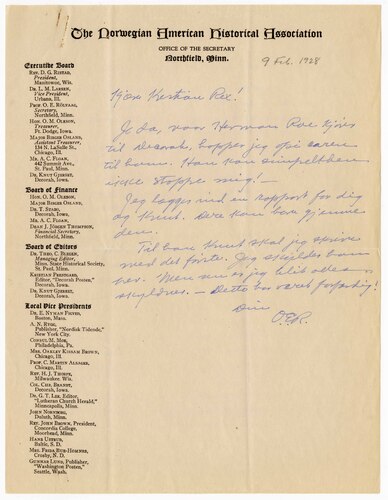 The Norwegian American Historical Association
OFFICE OF THE SECRETARY
Northfield, Minn.
9 Feb. 1928
Executive Board
REV. D. G. RISTAD,
President,
Manitowoc, Wis.
DR. L. M. LARSEN,
Vice President,
Urbana, Ill.
PROF. O. E. RÖLVAAG,
Secretary,
Northfield, Minn.
HON. O. M. OLESON,
Treasurer,
Ft. Dodge, Iowa.
MAJOR BIRGER OSLAND,
Assistant Treasurer,
134 N. LaSalle St.,
Chicago, Ill.
MR. A. C. FLOAN,
442 Summit Ave.,
St. Paul, Minn.
DR. KNUT GJERSET,
Decorah, Iowa.
Board of Finance
HON. O. M. OLESON,
MAJOR BIRGER OSLAND,
DR. T. STABO,
Decorah, Iowa.
MR. A. C. FLOAN,
DEAN J. JÖRGEN THOMPSON,
Financial Secretary,
Northfield, Minn.
Board of Editors
DR. THEO. C. BLEGEN,
Managing Editor,
Minn. State Historical Society,
St. Paul, Minn.
KRISTIAN PRESTGARD,
Editor, "Decorah Posten,"
Decorah, Iowa.
DR. KNUT GJERSET,
Decorah, Iowa.
Local Vice Presidents
DR. E. NYMAN FIGVED,
Boston, Mass.
A. N. RYGG,
Publisher, "Nordisk Tidende,"
New York City.
CONSUL M. MOE,
Philadelphia, Pa.
MRS. OAKLEY KISSAM BROWN,
Chicago, Ill.
PROF. C. MARTIN ALSAGER,
Chicago, Ill.
REV. H. J. THORPE,
Milwaukee, Wis.
COL. CHR. BRANDT,
Decorah, Iowa.
DR. G. T. LEE, Editor,
"Lutheran Church Herald,"
Minneapolis, Minn.
JOHN NORDBOE,
Duluth, Minn.
REV. JOHN BROWN, President,
Concordia College,
Moorhead, Minn.
HANS USTRUD,
Baltic, S. D.
MRS. FRIDA BUE-HOMNES,
Crosby, N. D.
GUNNAR LUND, Publisher,
"Washington Posten,"
Seattle, Wash.
Kjære Kristian Rex!
Jo da, naar Herman Roe kjører
til Decorah, hopper jeg opi karen
til ham. Han kan simpelthen
ikke stoppe mig! —
Jeg lægger ind en rapport for dig
og Knut. Dere kan bare gjemme
den.
Til ham Knut skal jeg skrive
med det første. Jeg skylder ham
brev. Men nu er jeg blit
skyldner. — Dette har været forfærdelig!
Din
O.E.R.